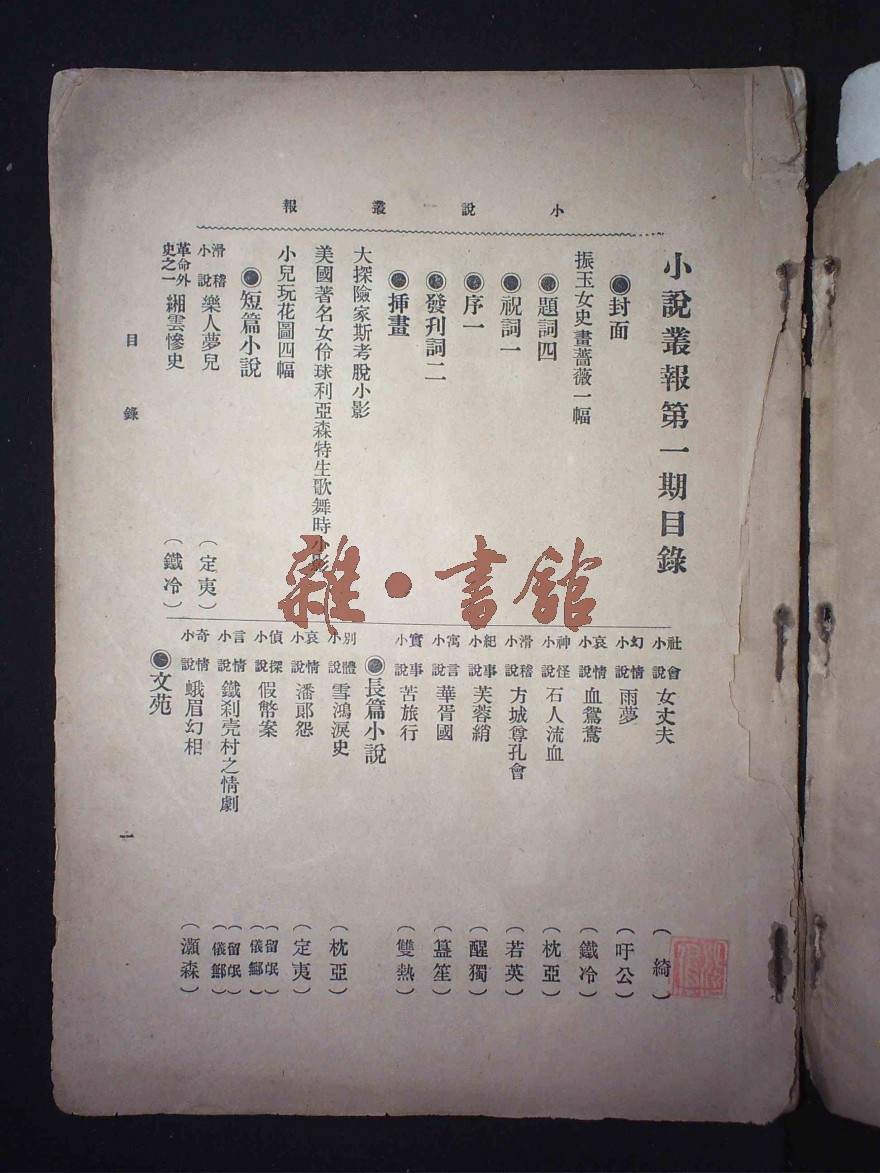 小說叢報
小說叢報第一期目錄
●封面
振玉女史畫薔薇一幅
●題詞四
●祝詞一
●序一
●發刋詞二
●挿畫
大探險家斯考脫小影
美國著名女伶球利亞森特生歌舞時小影
小兒玩花圖四幅
●短篇小說
滑稽小說 樂人夢兒 (定夷)
革命外史之一 緗雲慘史 (鐵冷)
社會小說 女丈夫 (綺)
幻情小說 雨夢 (吁公)
哀情小說 血鴛鴦 (鐵冷)
神怪小說 石人流血 (枕亞)
滑稽小說 方城尊孔會 (若英)
紀事小說 芙蓉綃 (醒獨)
寓言小說 華胥國 (簋笙)
實事小說 苦旅行 (雙熱)
●長篇小說
別體小說 雪鴻淚史 (枕亞)
哀情小說 潘郞怨 (定夷)
偵探小說 假幣案 (留氓儀鄦)
言情小說 鐵刹壳村之情劇 (留氓儀鄦)
奇情小說 蛾眉幻相 (灝森)
●文苑
目錄
一
雜·書館